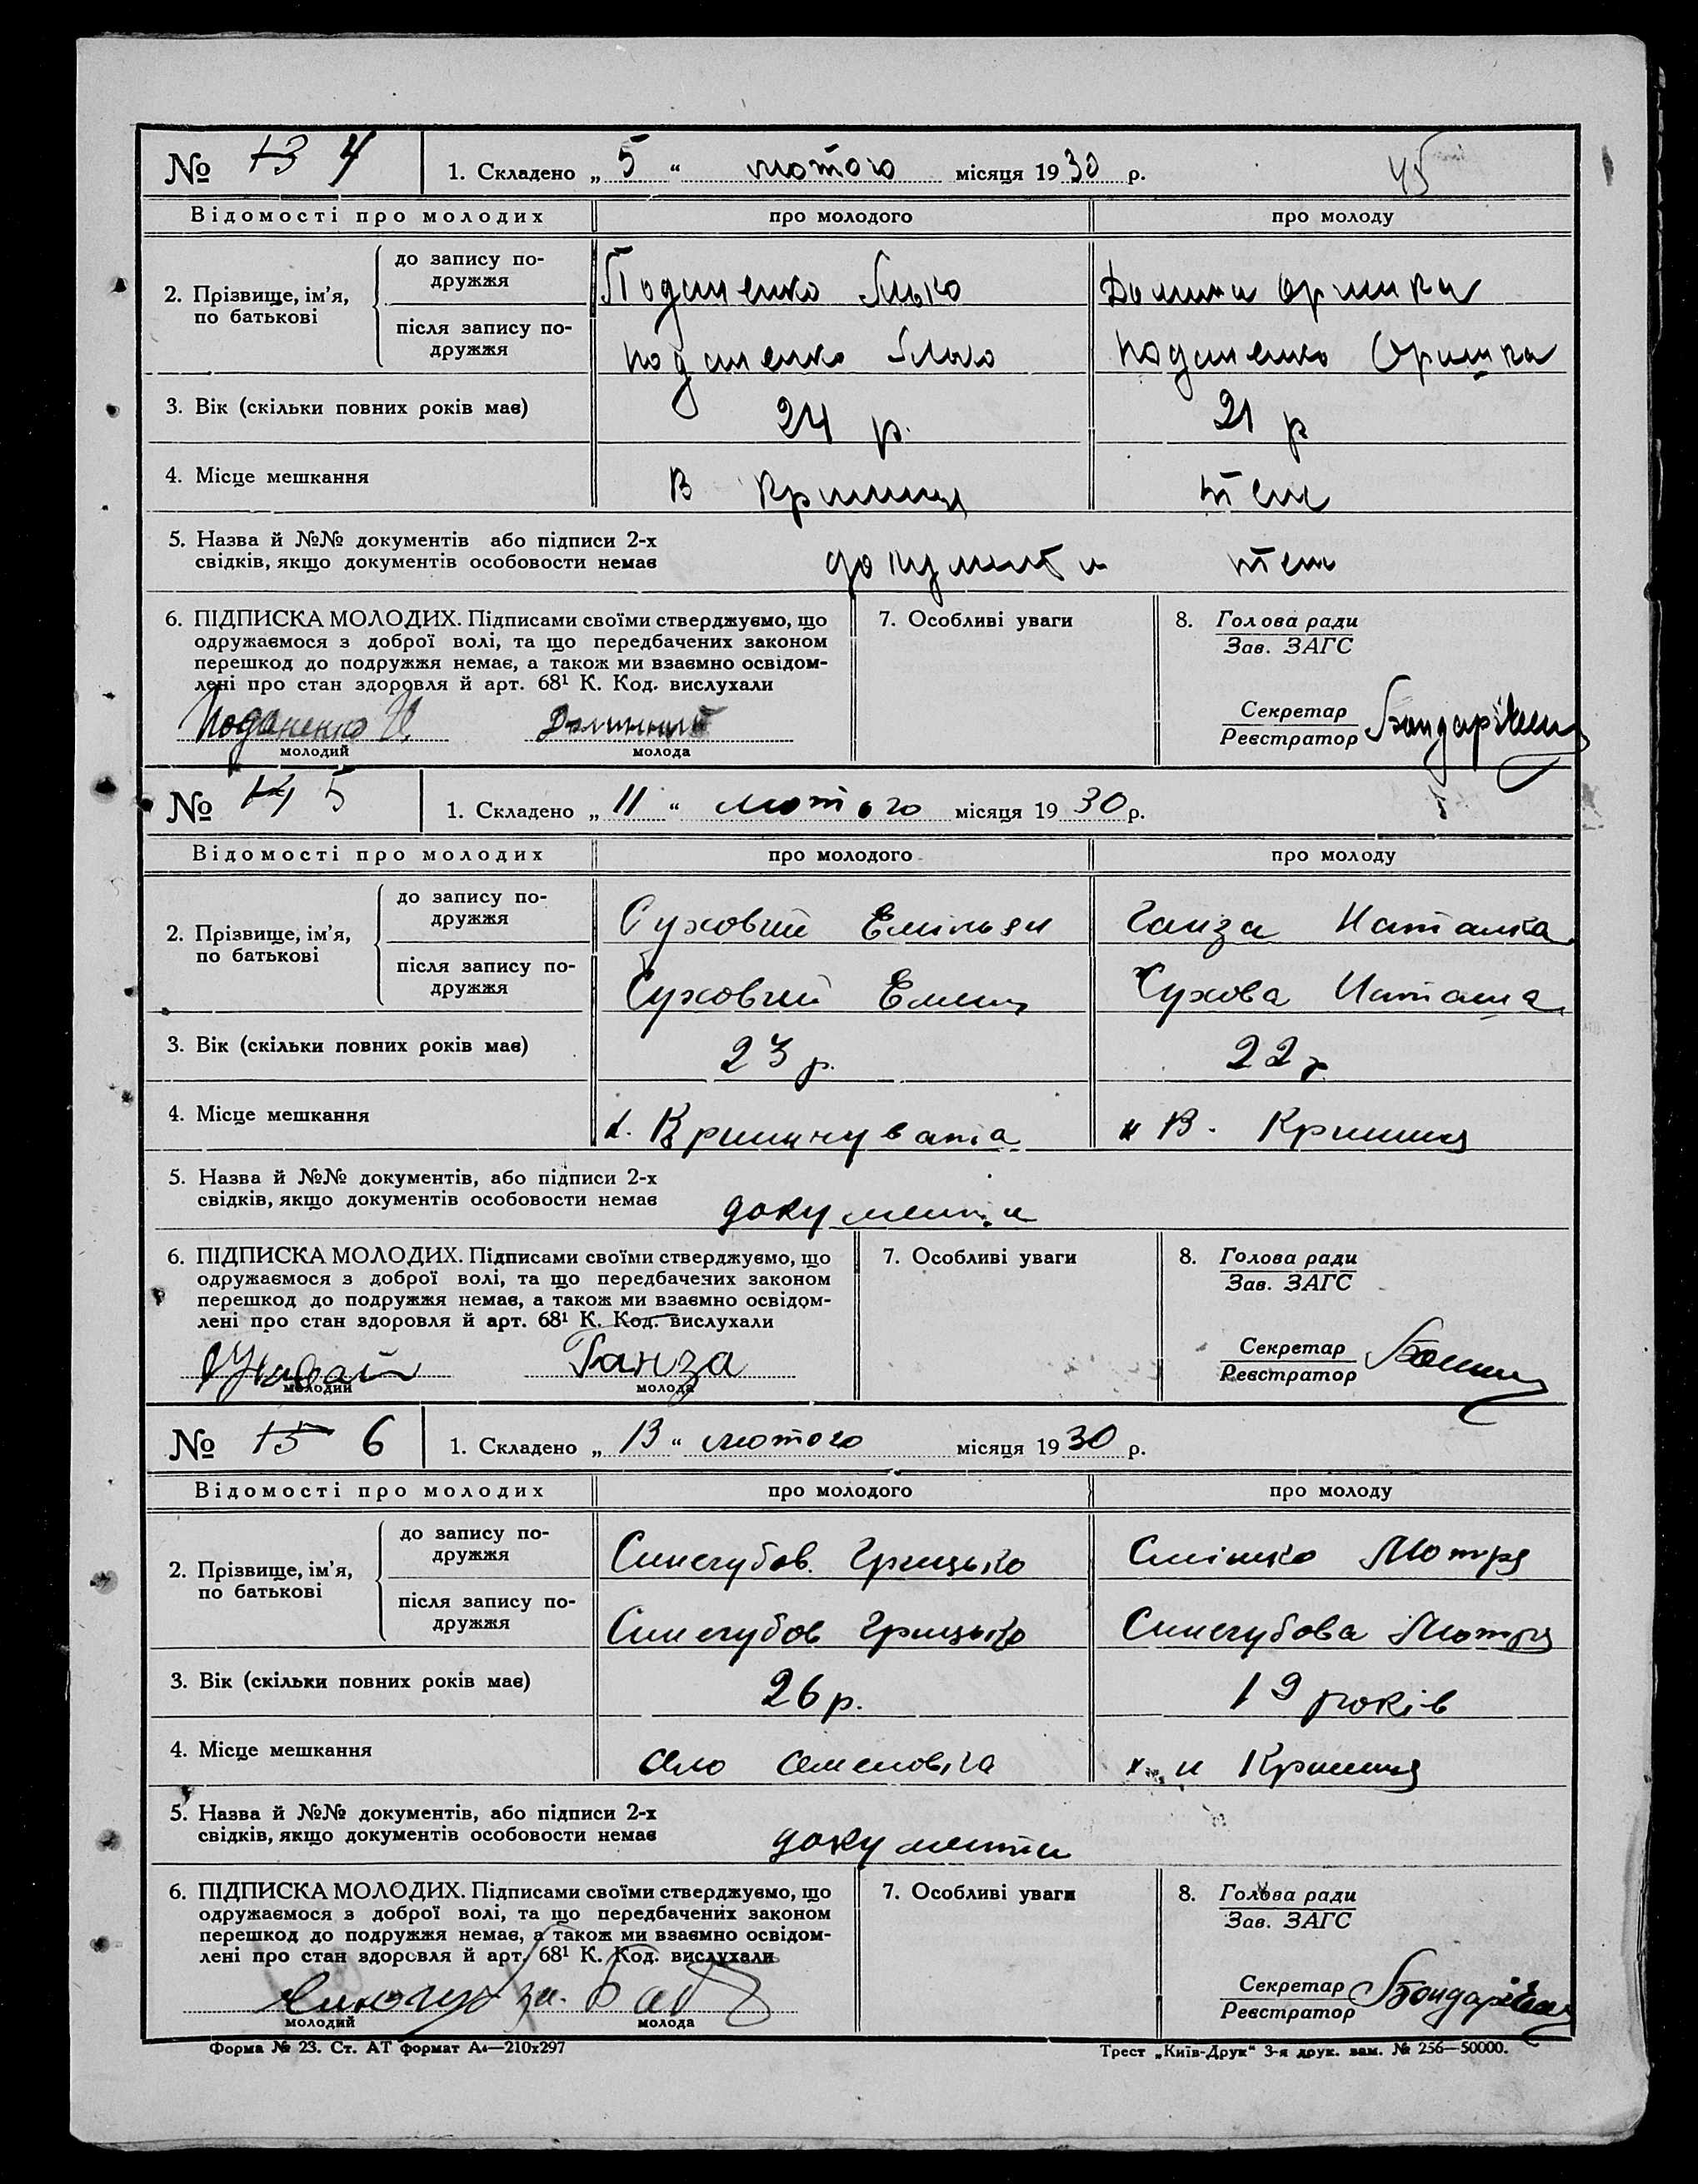 № 13 4
1. Складено „ 5 “ лютого місяця 1930 р.
45
Відомості про молодих
про молодого
про молоду
2. Прізвище, ім’я, по батькові
до запису по-
дружжя
Илько
Оришка
після запису по-
дружжя
Оришка
3. Вік (скільки повних років має)
24 р.
21 р
4. Місце мешкання
В Криниця
теж
5. Назва й №№ документів або підписи 2-х
свідків, якщо документів особовости немає
документи теж
6. ПІДПИСКА МОЛОДИХ. Підписами своїми стверджуємо, що
одружаємося з доброї волі, та що передбачених законом
перешкод до подружжя немає, а також ми взаємно освідом-
лені про стан здоровля й арт. 68¹ К. Код. вислухали
молодий
молода
7. Особливі уваги
8. Голова ради
Зав. ЗАГС
Секретар
Реєстратор
№ 14 5
1. Складено „ 11 “ лютого місяця 1930 р.
Відомості про молодих
про молодого
про молоду
2. Прізвище, ім’я,
по батькові
до запису по-
дружжя
Суховий Емільян
Ганза Наталка
після запису по-
дружжя
Суховий
Сухова
3. Вік (скільки повних років має)
23 р.
22 р
4. Місце мешкання
В. Криниця
5. Назва й №№ документів, або підписи 2-х
свідків, якщо документів особовости немає
документи
6. ПІДПИСКА МОЛОДИХ. Підписами своїми стверджуємо, що
одружаємося з доброї волі, та що передбачених законом
перешкод до подружжя немає, а також ми взаємно освідом-
лені про стан здоровля й арт. 68¹ К. Код. вислухали
Ганза
молодий
молода
7. Особливі уваги
8. Голова ради
Зав. ЗАГС
Секретар
Реєстратор
№ 15 6
1. Складено „ 13 “ лютого місяця 1930 р.
Відомості про молодих
про молодого
про молоду
2. Прізвище, ім’я,
по батькові
до запису по-
дружжя
Синегубов Грицько
Мотря
після запису по-
дружжя
Синегубов Грицько
Синегубова Мотря
3. Вік (скільки повних років має)
26 р.
19 років
4. Місце мешкання
село Семенівка
Криниця
5. Назва й №№ документів, або підписи 2-х
свідків, якщо документів особовости немає
документи
6. ПІДПИСКА МОЛОДИХ. Підписами своїми стверджуємо, що
одружаємося з доброї волі, та що передбачених законом
перешкод до подружжя немає, а також ми взаємно освідом-
лені про стан здоровля й арт. 68¹ К. Код. вислухали
молодий
молода
7. Особливі уваги
8. Голова ради
Зав. ЗАГС
Секретар
Реєстратор
Форма № 23. Ст. АТ формат А₄—210х297
Трест „Київ-Друк“ 3-я друк. зам. № 256—50000.